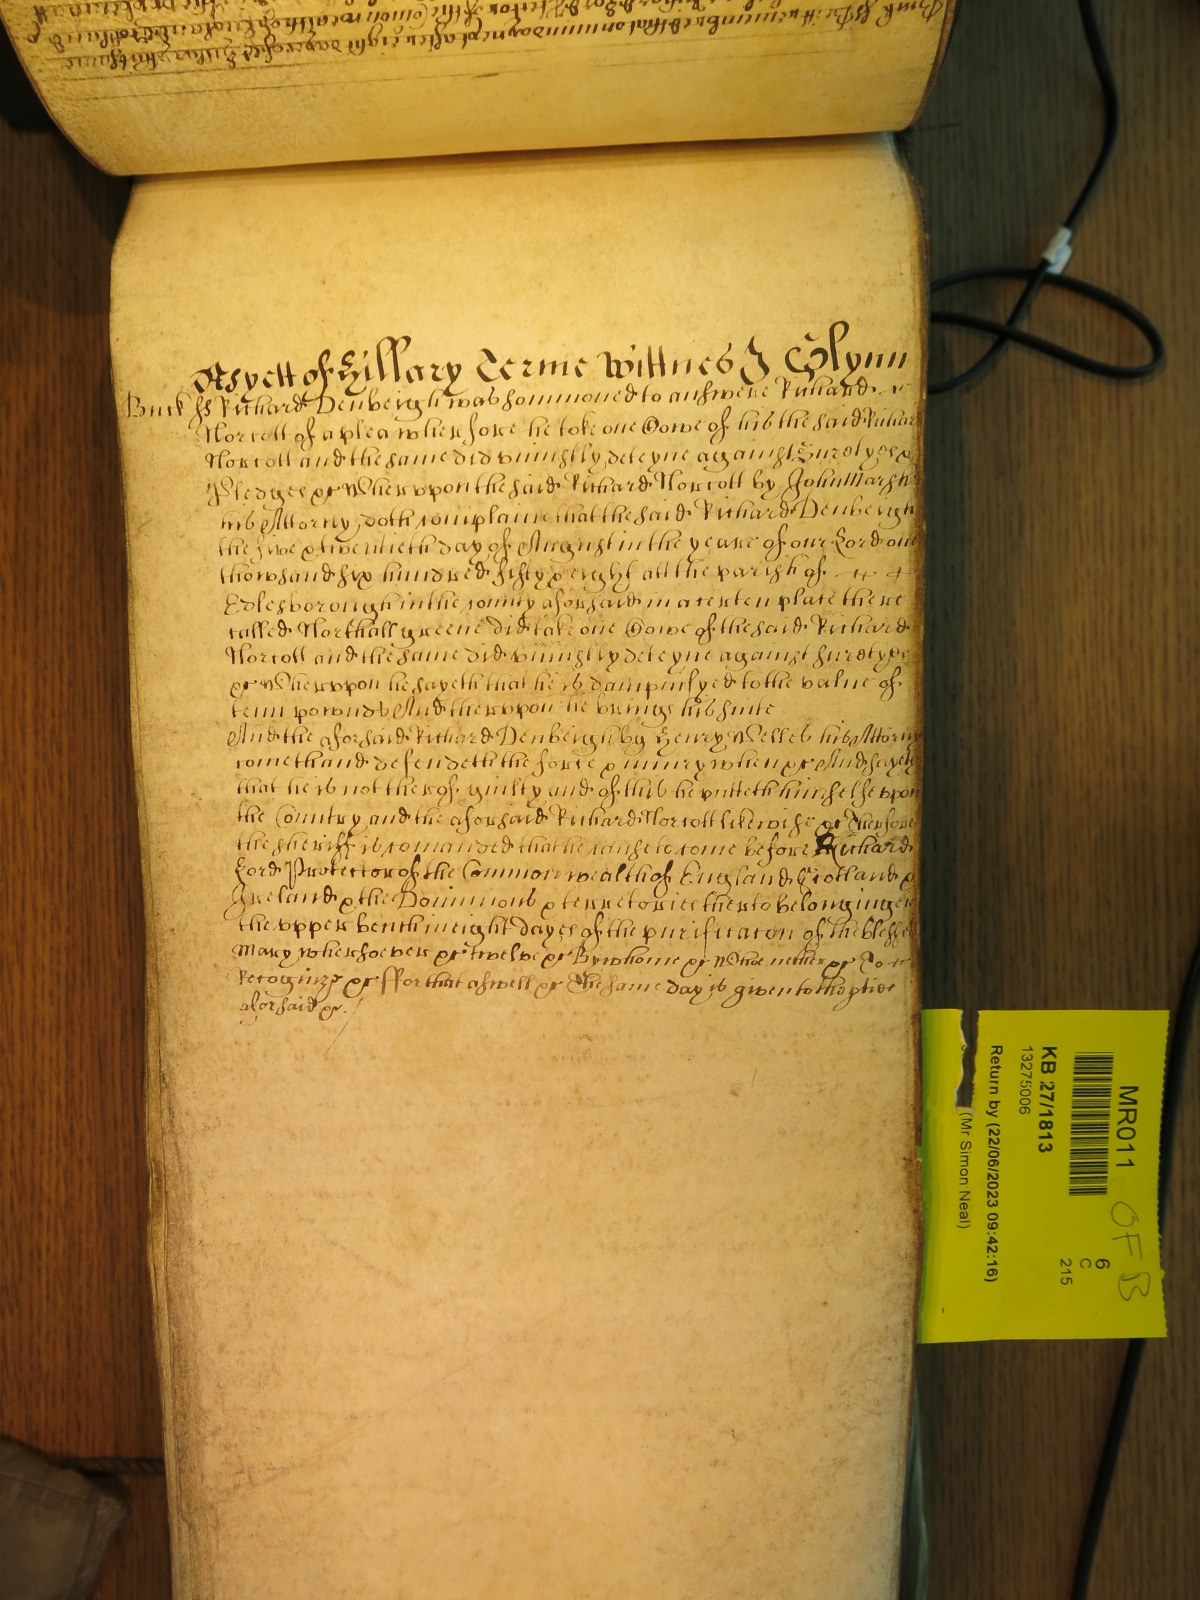 As yett of Hillary Terme Wittnes J Glynn
Buck ss Richard Denbeigh was sommoned to answere Richard
Norcott of a plea wherfore he toke one Cowe of his the said Richard
Norcott and the same did uniustly deteyne against Suretyes &
Pledges &c Wherupon the said Richard Norcott by John Marsh
his Attorny doth complaine that the said Richard Denbeigh
the five & twentieth day of August in the yeare of our Lord one
thowsand six hundred fifty & eight att the parish of
Edlesborough in the county aforsaid in a certen place there
called Northall greene did take one Cowe of the said Richard
Norcott and the same did uniustly deteyne against suretyes
&c Wherupon he sayeth that he is dampnifyed to the value of
tenn pownds And therupon he brings his suite
And the aforsaid Richard Denbeigh by Henry Welles his Attorny
cometh and defendeth the force & iniury when &c And sayeth
that he is not therof guilty and of this he putteth himselfe upon
the Country and the aforsaid Richard Norcott likewise &c Therfore
the sheriff is comanded that he cause to come before Richard
Lord Protector of the Commonwealth of England Scotland &
Ireland & the Dominions & territories therto belonginge in
the upper bench in eight dayes of the purificacon of the blessed
Mary whersoever &c twelve &c By whome &c Whoe nether &c To
Recognize &c ffor that aswell &c The same day is given to the pties
aforsaid &c.
MR011
KB 27/1813
13275006
Return by (22/06/2023 09:42:16)
(Mr Simon Neal)
6
C
215
OF B